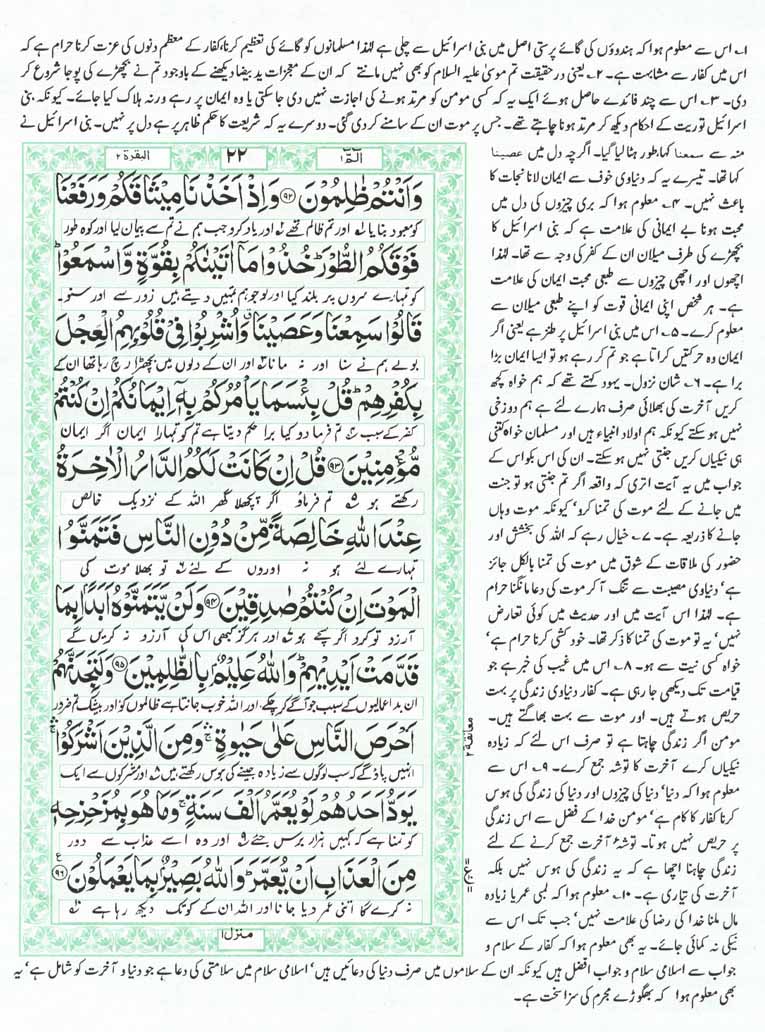 ۱۔ اس سے معلوم ہوا کہ ہندوؤں کی گائے پرستی اصل میں بنی اسرائیل سے چلی ہے لہٰذا مسلمانوں کو گائے کی تعظیم کرنا، کفار کے معظم دنوں کی عزت کرنا حرام ہے کہ
اس میں کفار سے مشابہت ہے۔ ۲۔ یعنی در حقیقت تم موسیٰ علیہ السلام کو بھی نہیں مانتے کہ ان کے معجزات ید بیضا دیکھنے کے باوجود تم نے بچھڑے کی پوجا شروع کر
دی۔ ۳۔ اس سے چند فائدے حاصل ہوئے ایک یہ کہ کسی مومن کو مرتد ہونے کی اجازت نہیں دی جا سکتی یا وہ ایمان پر رہے ورنہ ہلاک کیا جائے۔ کیونکہ بنی
اسرائیل توریت کے احکام دیکھ کر مرتد ہونا چاہتے تھے۔ جس پر موت ان کے سامنے کر دی گئی۔ دوسرے یہ کہ شریعت کا حکم ظاہر پر ہے دل پر نہیں۔ بنی اسرائیل نے
البقرۃ ۲
۲۲
الٓمّٓ ۱
وَاَنْتُمْ ظٰلِمُوْنَ ﴿۹۲﴾ وَاِذْ اَخَذْنَا مِيْثَاقَكُمْ وَرَفَعْنَا
کو معبود بنا لیا اور تم ظالم تھے اور یاد کرو جب ہم نے تم سے پیمان لیا اور کوہ طور
فَوْقَكُمُ الطُّوْرَ ؕ خُذُوْا مَاۤ اٰتَيْنٰكُمْ بِقُوَّةٍ وَّاسْمَعُوْا ؕ
کو تمہارے سروں پر بلند کیا اور لو جو ہم تمہیں دیتے ہیں زور سے اور سنو۔
قَالُوْا سَمِعْنَا وَعَصَيْنَا ۗ وَاُشْرِبُوْا فِيْ قُلُوْبِهِمُ الْعِجْلَ
بولے ہم نے سنا اور نہ مانا اور ان کے دلوں میں بچھڑا رچ رہا تھا ان کے
بِكُفْرِهِمْ ؕ قُلْ بِئْسَمَا يَاْمُرُكُمْ بِهٖۤ اِيْمَانُكُمْ اِنْ كُنْتُمْ
کفر کے سبب تم فرما دو کیا برا حکم دیتا ہے تم کو تمہارا ایمان اگر ایمان
مُّؤْمِنِيْنَ ﴿۹۳﴾ قُلْ اِنْ كَانَتْ لَكُمُ الدَّارُ الْاٰخِرَةُ
رکھتے ہو تم فرماؤ اگر پچھلا گھر اللہ کے نزدیک خالص
عِنْدَ اللّٰهِ خَالِصَةً مِّنْ دُوْنِ النَّاسِ فَتَمَنَّوُا
تمہارے لئے ہو نہ اوروں کے لئے تو بھلا موت کی
الْمَوْتَ اِنْ كُنْتُمْ صٰدِقِيْنَ ﴿۹۴﴾ وَلَنْ يَّتَمَنَّوْهُ اَبَدًۢا بِمَا
آرزو تو کرو اگر سچے ہو اور ہرگز کبھی اس کی آرزو نہ کریں گے
قَدَّمَتْ اَيْدِيْهِمْ ؕ وَاللّٰهُ عَلِيْمٌۢ بِالظّٰلِمِيْنَ ﴿۹۵﴾ وَلَتَجِدَنَّهُمْ
ان بد اعمالیوں کے سبب جو آگے کر چکے، اور اللہ خوب جانتا ہے ظالموں کو اور بیشک تم ضرور
اَحْرَصَ النَّاسِ عَلٰى حَيٰوةٍ ۛۚ وَمِنَ الَّذِيْنَ اَشْرَكُوْا ۛۚ
انہیں پاؤ گے کہ سب لوگوں سے زیادہ جینے کی ہوس رکھتے ہیں اور مشرکوں سے ایک
يَوَدُّ اَحَدُهُمْ لَوْ يُعَمَّرُ اَلْفَ سَنَةٍ ۚ وَمَا هُوَ بِمُزَحْزِحِهٖ
کو تمنا ہے کہ کہیں ہزار برس جئے اور وہ اسے عذاب سے دور
مِنَ الْعَذَابِ اَنْ يُّعَمَّرَ ؕ وَاللّٰهُ بَصِيْرٌۢ بِمَا يَعْمَلُوْنَ ﴿۹۶﴾ ع
نہ کرے گا اتنی عمر دیا جانا اور اللہ ان کے کوتک دیکھ رہا ہے
منزل ۱
معانقة ۲
منہ سے سمعنا کہا، طور ہٹا لیا گیا۔ اگرچہ دل میں عصینا
کہا تھا۔ تیسرے یہ کہ دنیاوی خوف سے ایمان لانا نجات کا
باعث نہیں۔ ۴۔ معلوم ہوا کہ بری چیزوں کی دل میں
محبت ہونا بے ایمانی کی علامت ہے کہ بنی اسرائیل کا
بچھڑے کی طرف میلان ان کے کفر کی وجہ سے تھا۔ لہٰذا
اچھوں اور اچھی چیزوں سے طبعی محبت ایمان کی علامت
ہے۔ ہر شخص اپنی ایمانی قوت کو اپنے طبعی میلان سے
معلوم کرے۔ ۵۔ اس میں بنی اسرائیل پر طنز ہے یعنی اگر
ایمان وہ حرکتیں کراتا ہے جو تم کر رہے ہو تو ایسا ایمان بڑا
برا ہے۔ ۶۔ شان نزول۔ یہود کہتے تھے کہ ہم خواہ کچھ
کریں آخرت کی بھلائی صرف ہمارے لئے ہے ہم دوزخی
نہیں ہو سکتے کیونکہ ہم اولاد انبیاء ہیں اور مسلمان خواہ کتنی
ہی نیکیاں کریں جنتی نہیں ہو سکتے۔ ان کی اس بکواس کے
جواب میں یہ آیت اتری کہ واقعہ اگر تم جنتی ہو تو جنت
میں جانے کے لئے موت کی تمنا کرو، کیونکہ موت وہاں
جانے کا ذریعہ ہے۔ ۷۔ خیال رہے کہ اللہ کی بخشش اور
حضور کی ملاقات کے شوق میں موت کی تمنا بالکل جائز
ہے، دنیاوی مصیبت سے تنگ آ کر موت کی دعا مانگنا حرام
ہے۔ لہٰذا اس آیت میں اور حدیث میں کوئی تعارض
نہیں، یہ تو موت کی تمنا کا ذکر تھا۔ خود کشی کرنا حرام ہے،
خواہ کسی نیت سے ہو۔ ۸۔ اس میں غیب کی خبر ہے جو
قیامت تک دیکھی جا رہی ہے۔ کفار دنیاوی زندگی پر بہت
حریص ہوتے ہیں۔ اور موت سے بہت بھاگتے ہیں۔
مومن اگر زندگی چاہتا ہے تو صرف اس لئے کہ زیادہ
نیکیاں کرے آخرت کا توشہ جمع کرے۔ ۹۔ اس سے
معلوم ہوا کہ دنیا، دنیا کی چیزوں اور دنیا کی زندگی کی ہوس
کرنا کفار کا کام ہے، مومن خدا کے فضل سے اس زندگی
پر حریص نہیں ہوتا۔ توشۂ آخرت جمع کرنے کے لئے
زندگی چاہنا اچھا ہے کہ یہ زندگی کی ہوس نہیں بلکہ
آخرت کی تیاری ہے۔ ۱۰۔ معلوم ہوا کہ لمبی عمر یا زیادہ
مال ملنا خدا کی رضا کی علامت نہیں، جب تک اس سے
نیکی نہ کمائی جائے۔ یہ بھی معلوم ہوا کہ کفار کے سلام و
جواب سے اسلامی سلام و جواب افضل ہیں کیونکہ ان کے سلاموں میں صرف دنیا کی دعائیں ہیں، اسلامی سلام میں سلامتی کی دعا ہے جو دنیا و آخرت کو شامل ہے، یہ
بھی معلوم ہوا کہ بھگوڑے مجرم کی سزا سخت ہے۔